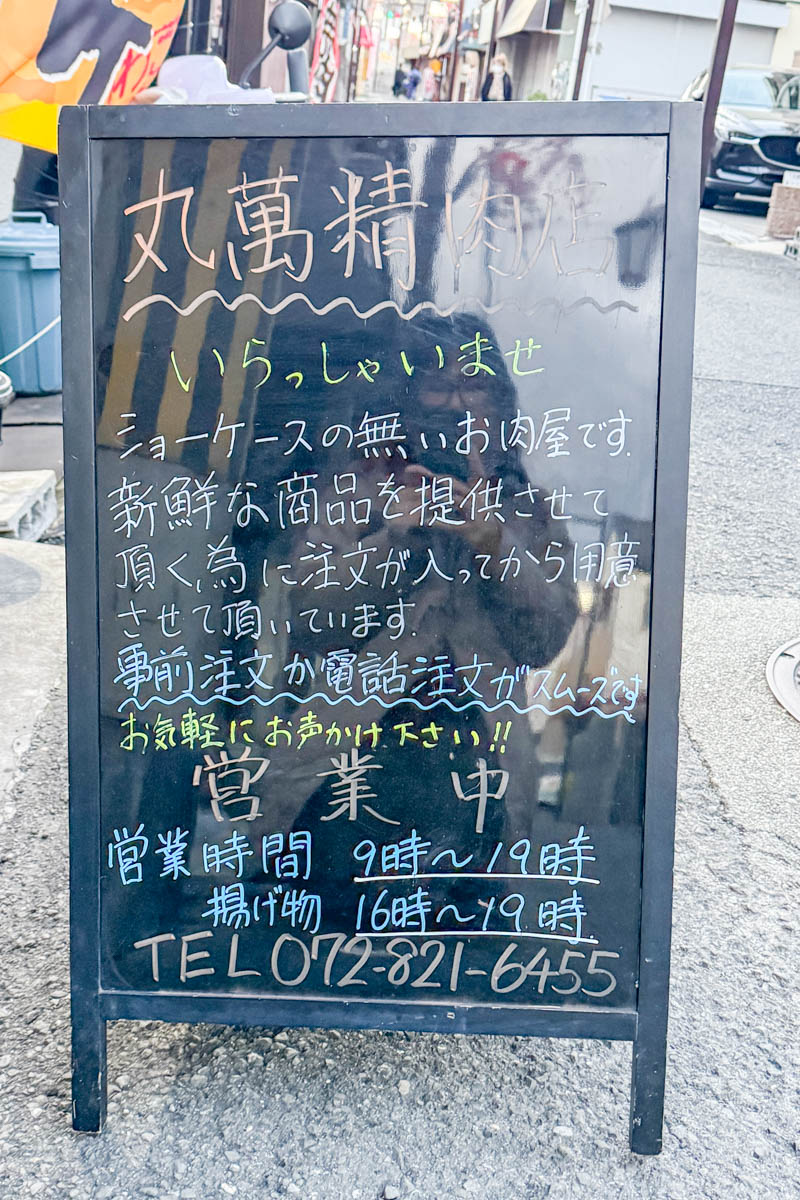 丸萬精肉店
いらっしゃいませ
ショーケースの無いお肉屋です.
新鮮な商品を提供させて
頂く為に注文が入ってから用意
させて頂いています.
事前注文か電話注文がスムーズです
お気軽にお声かけ下さい!!
営業中
営業時間 9時〜19時
揚げ物 16時〜19時
TEL 072-821-6455